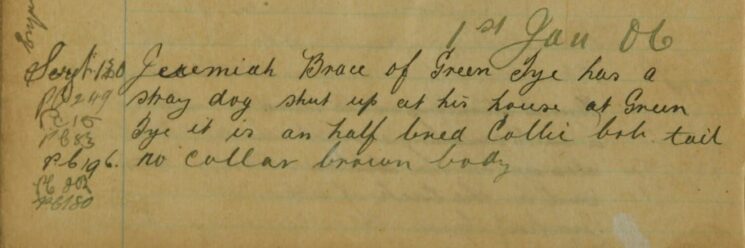 1st Jan 06
Sergt 130 Jeremiah Brace of Green Tye has a
PC 249 stray dog shut up at his house at Green
PC 15
PC 83 Tye it is an half bred Collie bob tail
PC 196. no collar brown body
PC 202
PC 180